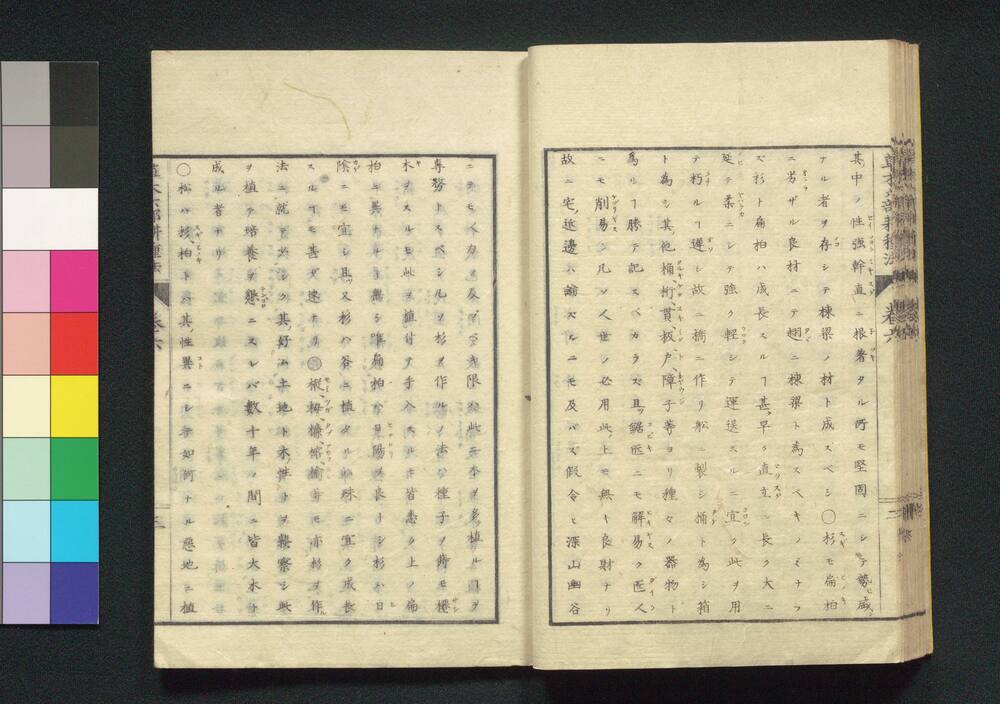 其中ノ性強幹直ニ根著タル所モ堅固ニシテ勢ヒ盛
ナル者ヲ存シテ棟梁ノ材ト成スベシ〇杉モ扁柏
ニ劣ザル良材ニテ棟梁ト為スベキノミナラ
ズ杉ト扁柏ハ成長スルヿ甚早ク直立ニ長ク大ニ
延テ柔ニシテ強ク軽シテ運送スルニ宜ク此ヲ用
テ朽ルヿ遅シ故ニ橋ニ作リ船ニ製シ桶ト為シ箱
ト為シ其他桶桁貫板戸障子等ヨリ種々ノ器物ト
為ルヿ勝テ記スベカラズ且鋸匠ニモ解易ク匠人
ニモ削易シ凡ソ人世ノ必用此上モ無キ良財ナリ
故ニ宅近邊ハ論ズルニモ及バズ假令ヒ深山幽谷
ニテモ人力ノ及ブベキ限ハ此二木ヲ多ク植ルヿヲ
専務トスベシ凡ソ杉ヲ作ルノ法ハ種子ノ蒔モ
木ヲスルモ此ヲ植付テ手入スルモ皆悉ク上ノ扁
柏ニ異ナルヿ無シ唯扁柏ハ日陽ヲ良トシ杉ハ日
陰ニモ宜シ且又杉ハ谷ニ植タルハ殊ニ宜ク成長
スルヿモ甚ダ速ナリ 等モ亦杉ヲ作ル
法ニ就テ其好ム土地ト水性トヲ察シ此
ヲ植テ培養ヲ懇ニスレバ數十年ノ間ニ皆大木ト
成ル者ナリ
〇松ハ柏トハ其性異ニシテ如何ナル惡地ニ植
巻六